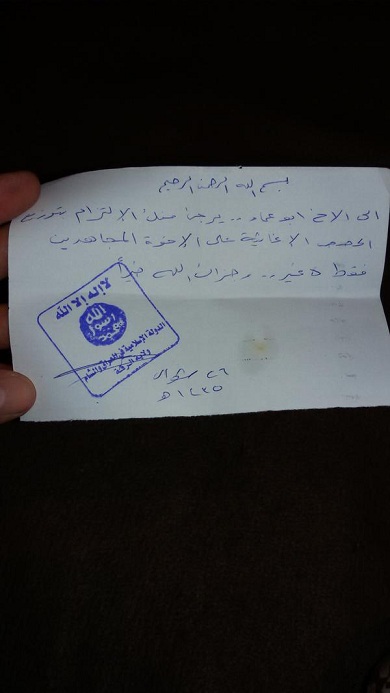 بسم الله الرحمن الرحيم
الى الاخ ابو عماد .. يرجى منك الالتزام بتوزيع
الحصص الاغاثية على الاخوة المجاهدين
فقط لا غير .. وجزاك الله خيراً
لا إله إلا الله
الله
رسول
محمد
الدولة الإسلامية في العراق والشام
ولاية الرقة
٢٦
١٤٣٥ هـ